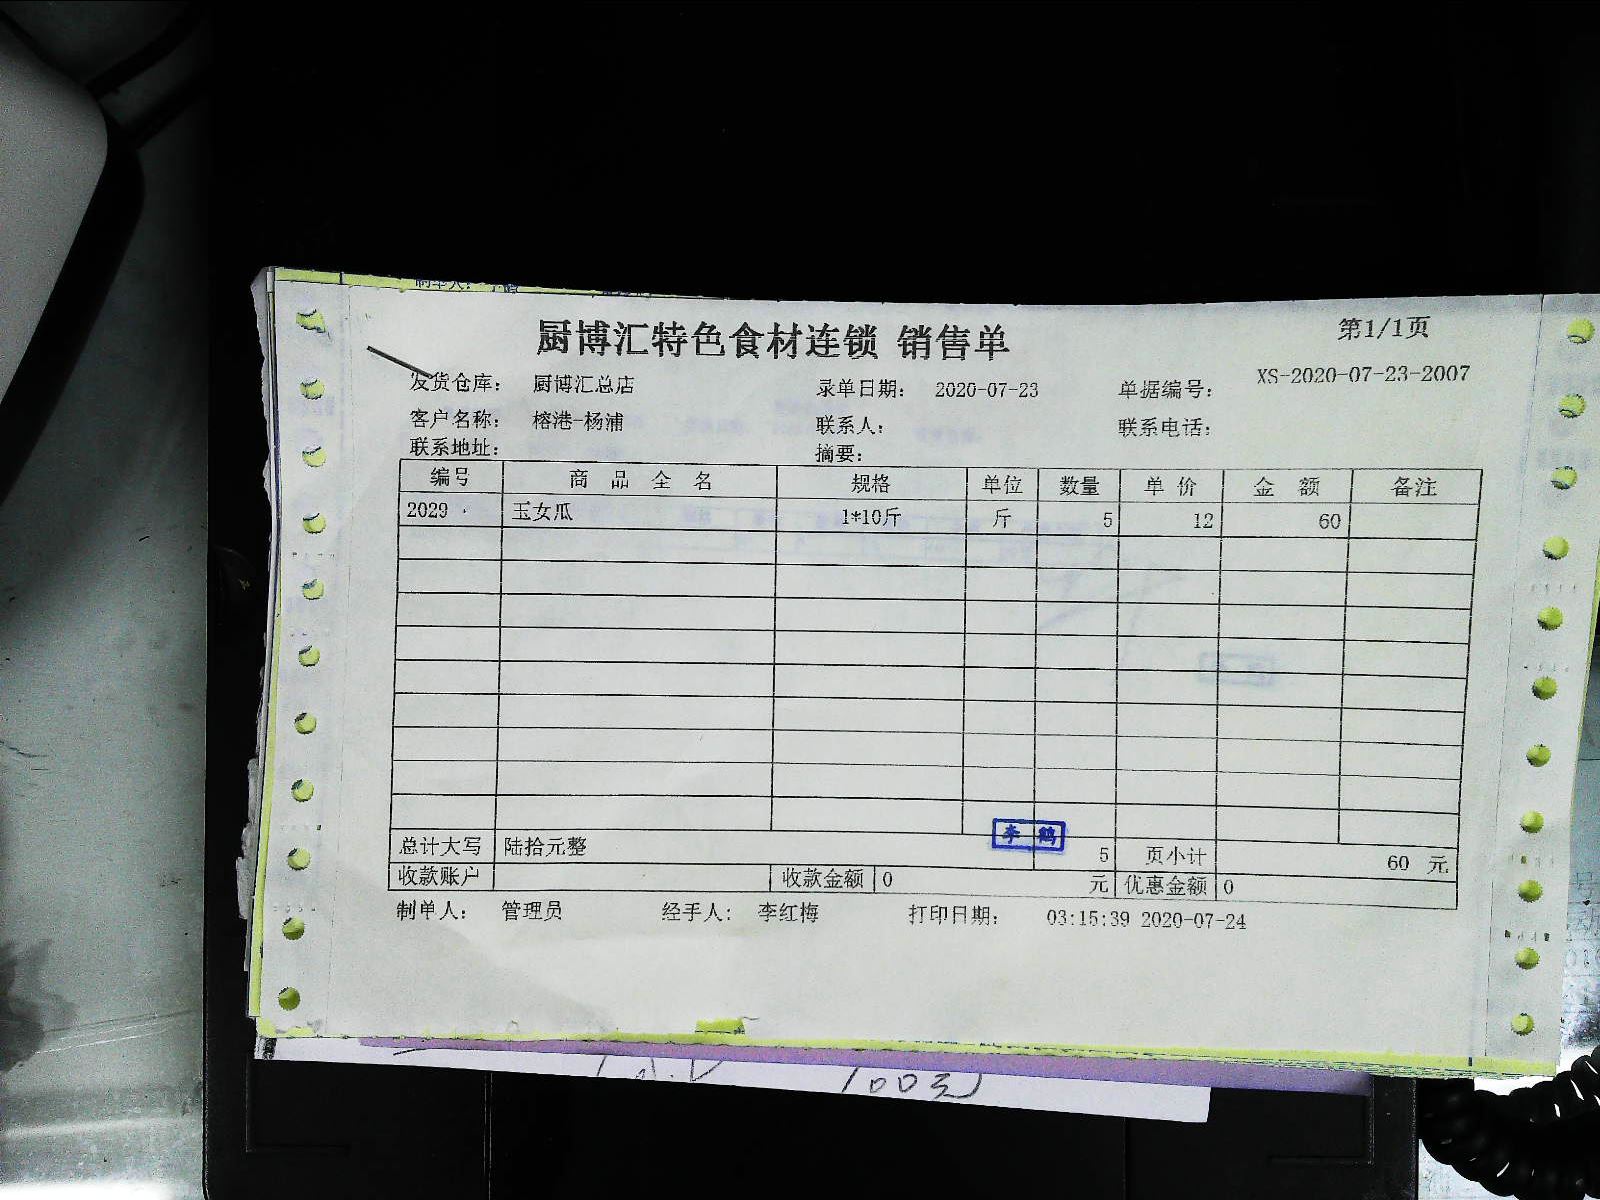 厨博汇特色食材连锁 销售单 第1/1页
发货仓库： 厨博汇总店 录单日期： 2020-07-23 单据编号： XS-2020-07-23-2007
客户名称： 榕港-杨浦 联系人： 联系电话：
联系地址： 摘要：
编号 商品全名 规格 单位 数量 单价 金额 备注
2029 玉女瓜 1*10斤 斤 5 12 60
李鹤
总计大写 陆拾元整 5 页小计 60 元
收款账户 收款金额 0 元 优惠金额 0
制单人： 管理员 经手人： 李红梅 打印日期： 03:15:39 2020-07-24
100元